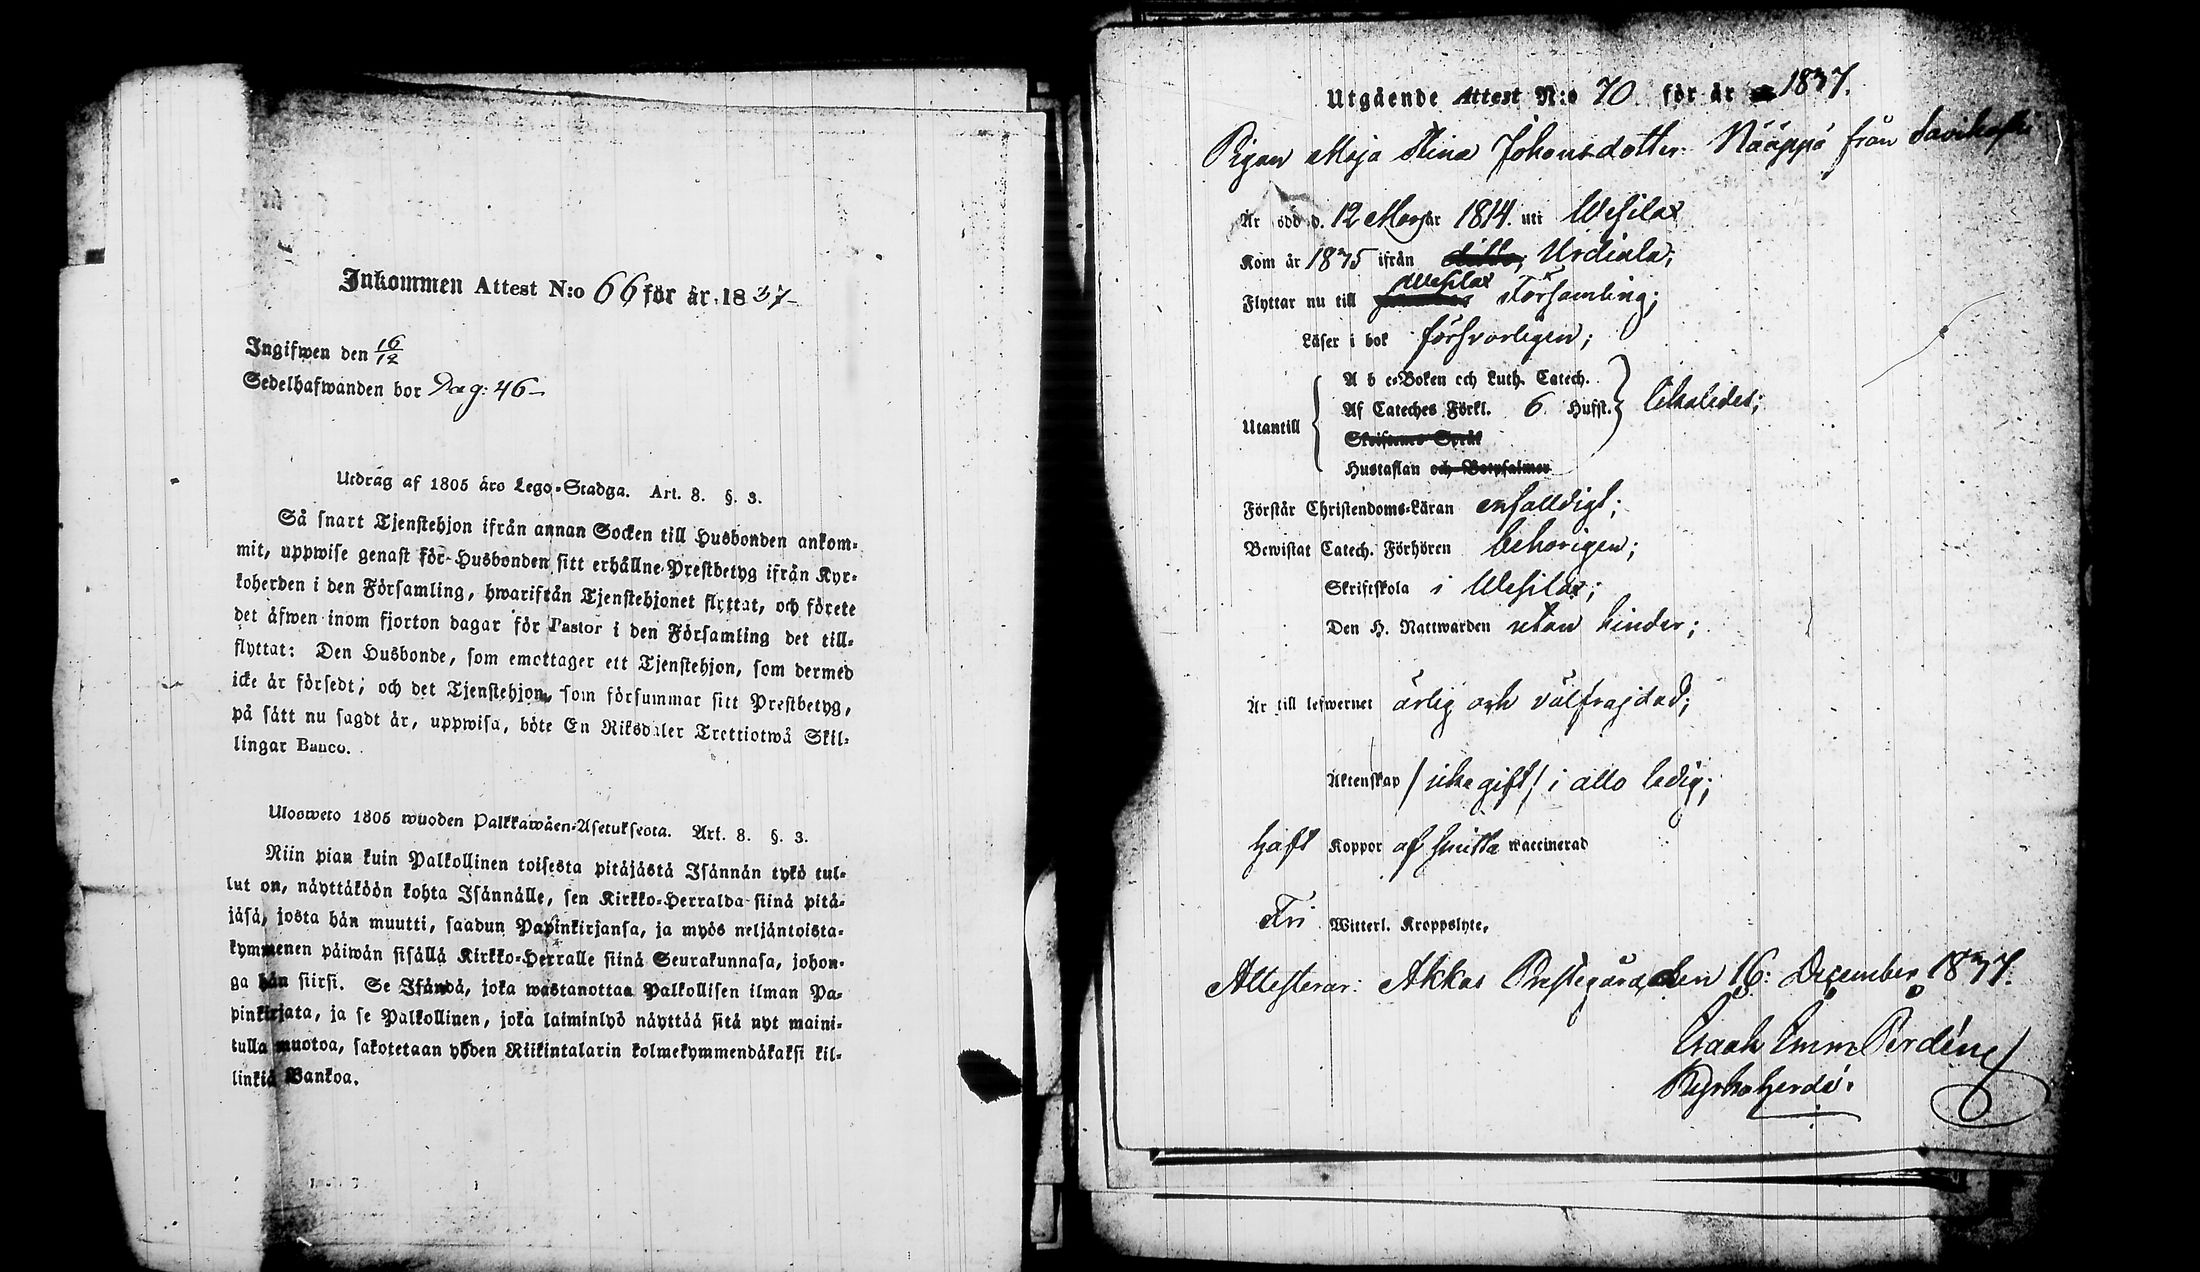 Inkommen Attest N:o 66 för år 1837
Ingifwen den 16/12
Sedelhafwanden bor Pag: 46
Utdrag af 1805 års Lego-Stadga. Art. 8. §. 3.
Så snart Tjenstehjon ifrån annan Socken till Husbonden ankom-
mit, uppwise genast för Husbonden sitt erhållne Prestbetyg ifrån Kyr-
koherden i den Församling, hwarifrån Tjenstehjonet flyttat, och förete
det äfwen inom fjorton dagar för Pastor i den Församling det till-
flyttat: Den Husbonde, som emottager ett Tjenstehjon, som dermed
icke är försedt; och det Tjenstehjon, som försummar sitt Prestbetyg,
på sätt nu sagdt är, uppwisa, böte En Riksdaler Trettiotwå Skil-
lingar Banco.
Ulosweto 1805 wuoden Palkkawäen-Asetuksesta. Art. 8. §. 3.
Niin pian kuin Palkollinen toisesta pitäjästä Isännän tykö tul-
lut on, näyttäköön kohta Isännälle, sen Kirkko-Herralda siinä pitä-
jäsä, josta hän muutti, saadun Papinkirjansa, ja myös neljäntoista-
kymmenen päiwän sisällä Kirkko-Herralle siinä Seurakunnasa, johon-
ga hän siirsi. Se Isändä, joka wastanottaa Palkollisen ilman Pa-
pinkirjata, ja se Palkollinen, joka laiminlyö näyttää sitä nyt maini-
tulla muotoa, sakotetaan yhden Riikintalarin kolmekymmendäkaksi kil-
linkiä Bankoa.
Utgående Attest N:o 70 för år 1837.
Pigan Maja Stina Johansdotter Nääppä från
Är född d. 12 Mars år 1814. uti Wesilax
Kom år 1835 ifrån ditto, Urdiala;
Flyttar nu till Wesilax Församling;
Läser i bok försvarligen;
Utantill
A b c-Boken och Luth. Catech.
Af Cateches Förkl. 6 Hufst. likaledes;
Skriftenes Språk
Hustaflan och Botpsalmer
Förstår Christendoms-Läran enfalldigt;
Bewistat Catech. Förhören behörigen;
Skriftskola i Wesilax;
Den H. Nattwarden utan hinder;
Är till lefwernet ärlig och välfrajdad;
Äktenskap /icke gift/ i allo ledig;
haft Koppor af smitta waccinerad
Fri Witterl. Kroppslyte,
Attesterar: Akkas Prestegård den 16: December 1837.
Isaak Emm Perdén
Kyrkoherde.